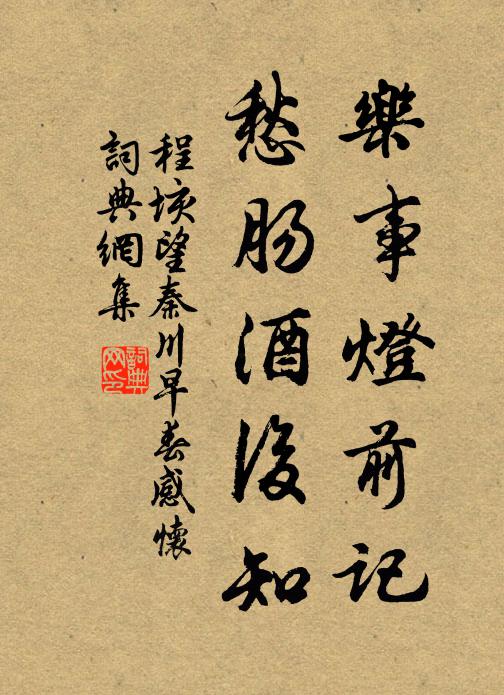 樂事燈前記
愁肠酒後知
程垓望秦川早春感懷
詞典網集
詞典网印